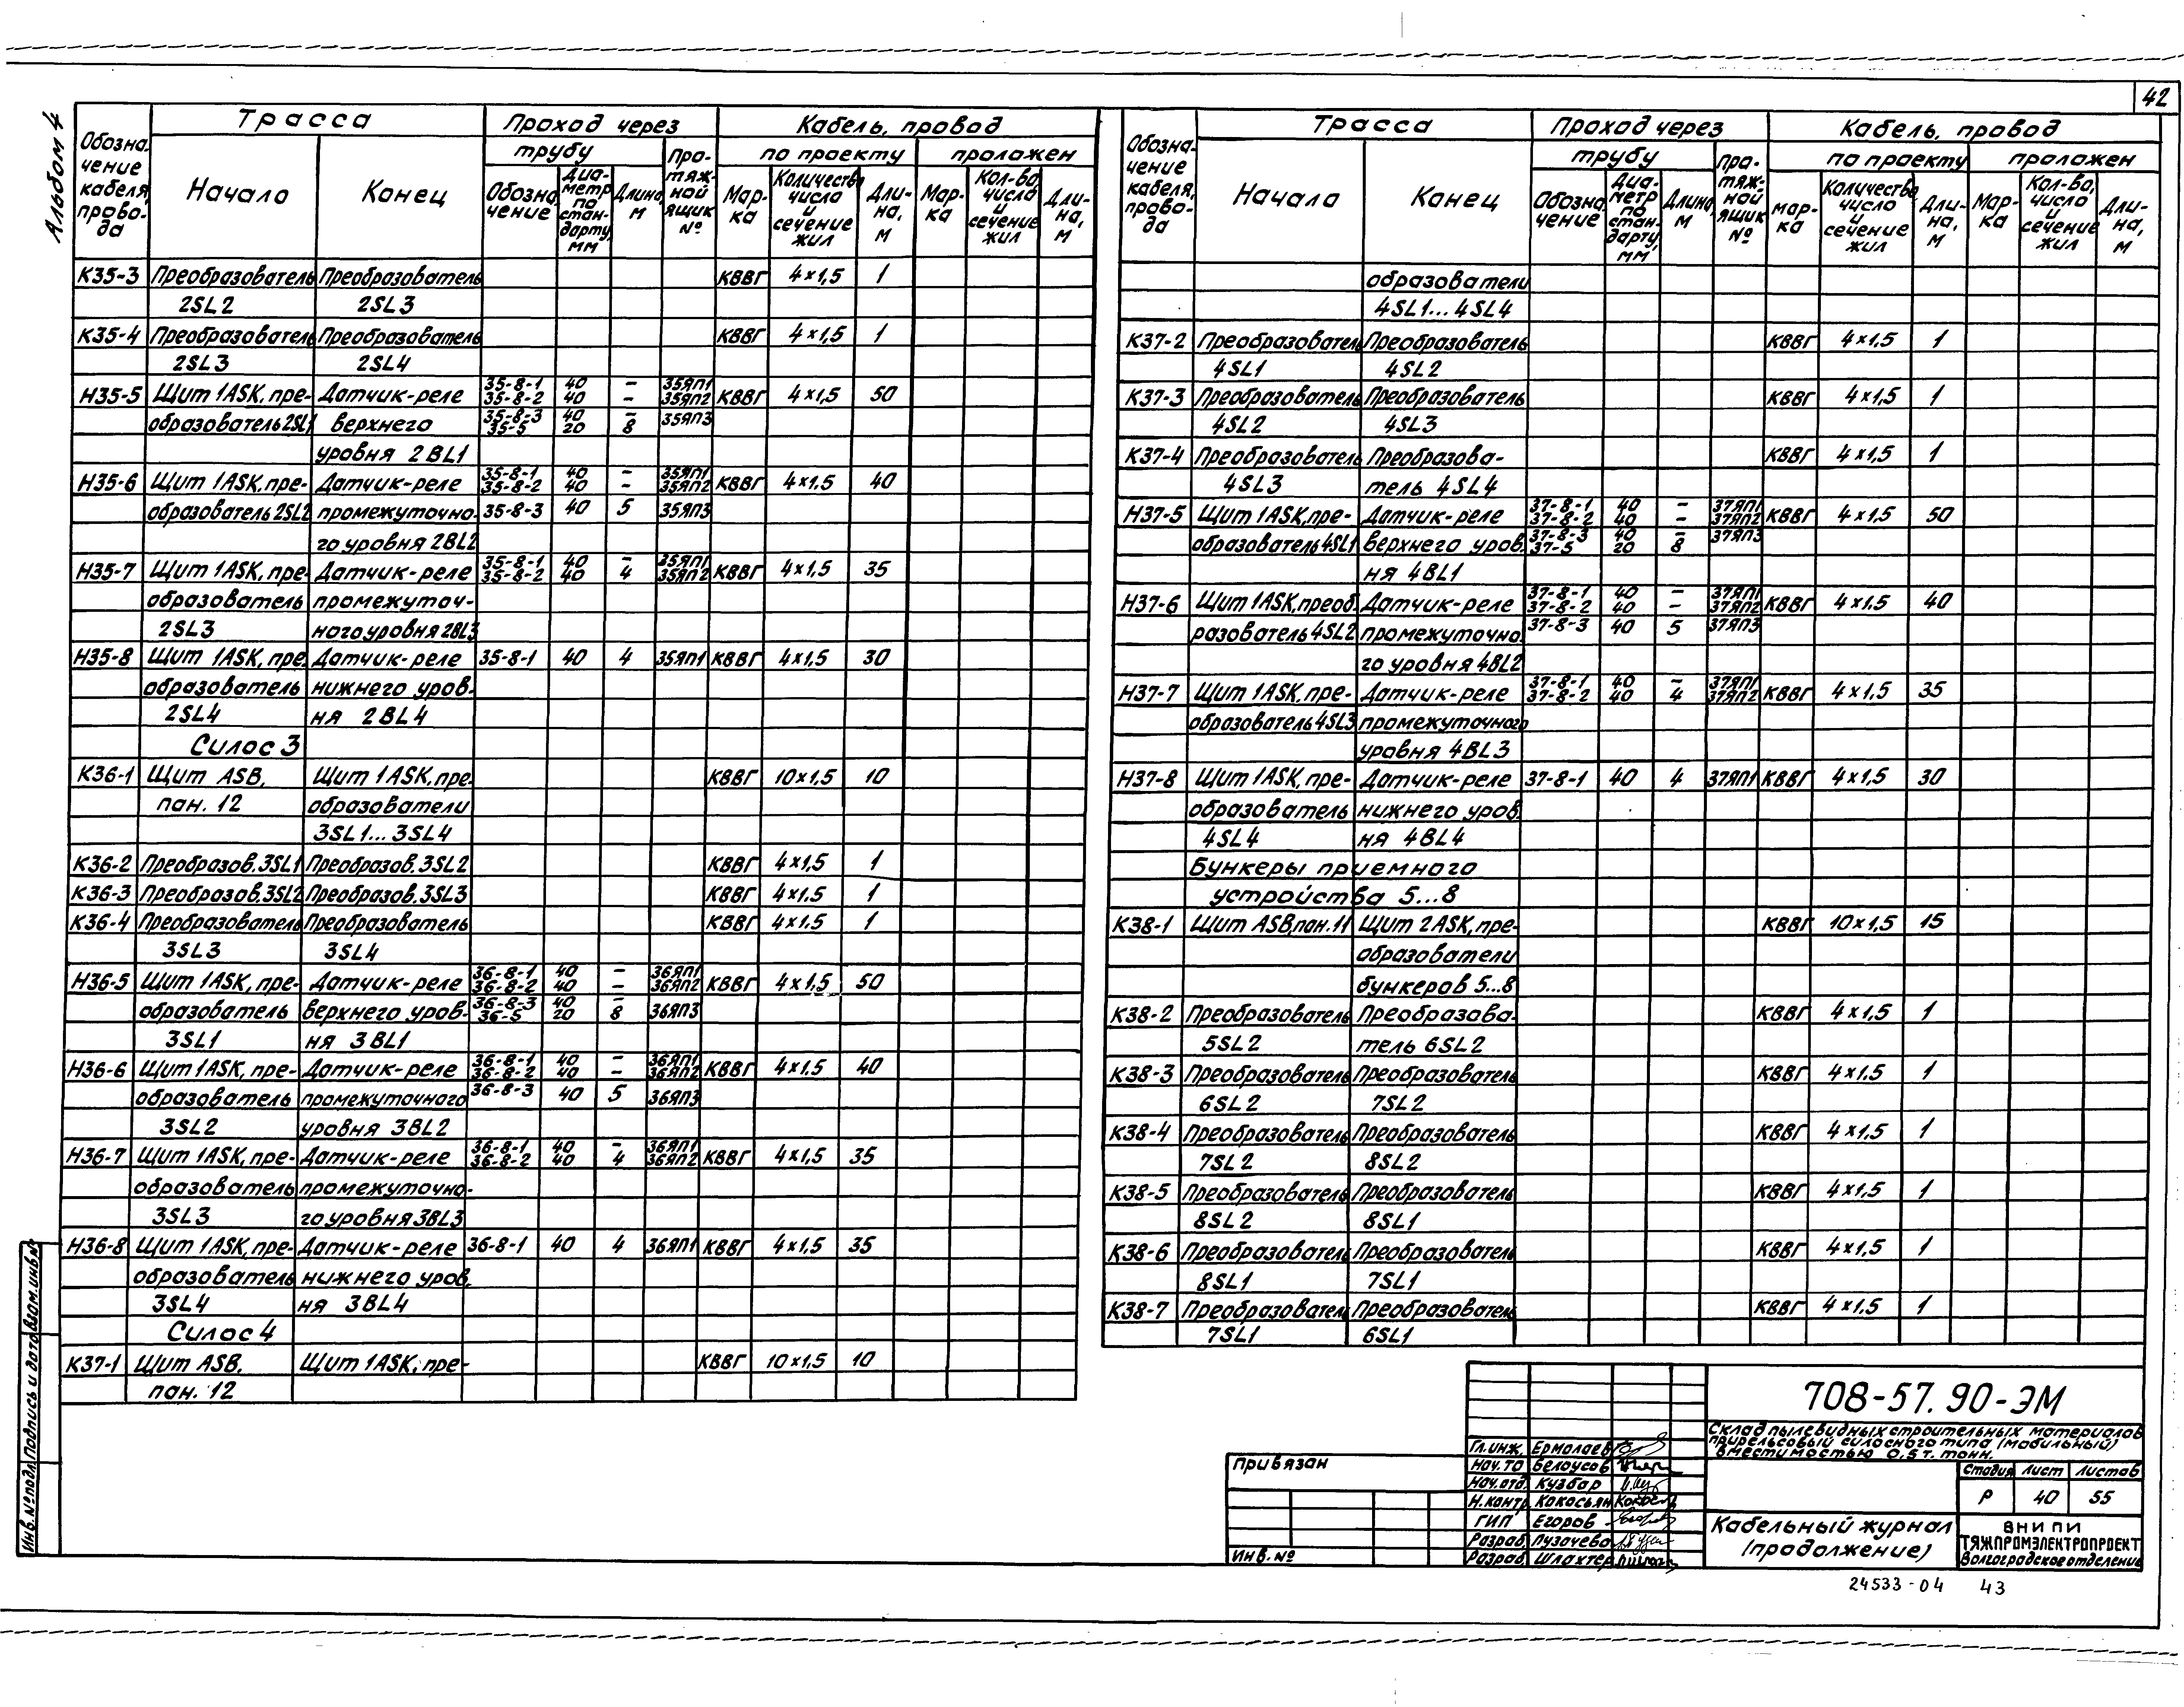 42
Альбом 4
Обозна- чение кабеля, прово- да | Трасса | Проход через | Кабель, провод
трубу | Про- тяж- ной ящик № | по проекту | проложен
Начало | Конец | Обозна- чение | Диа- метр по стан- дарту, мм | Длина, м | Мар- ка | Количество, число и сечение жил | Дли- на, м | Мар- ка | Кол-во, число и сечение жил | Дли- на, м
К35-3 Преобразователь Преобразователь КВВГ 4×1,5 1
2SL2 2SL3
К35-4 Преобразователь Преобразователь КВВГ 4×1,5 1
2SL3 2SL4
35-8-1 40 – 35ЯП1
Н35-5 Щит 1ASK, пре- Датчик-реле 35-8-2 40 – 35ЯП2 КВВГ 4×1,5 50
35-8-3 40 – 35ЯП3
образователь 2SL1 верхнего 35-5 20 8
уровня 2BL1
35-8-1 40 – 35ЯП1
Н35-6 Щит 1ASK, пре- Датчик-реле 35-8-2 40 – 35ЯП2 КВВГ 4×1,5 40
образователь 2SL2 промежуточно- 35-8-3 40 5 35ЯП3
го уровня 2BL2
35-8-1 40 – 35ЯП1
Н35-7 Щит 1ASK, пре- Датчик-реле 35-8-2 40 4 35ЯП2 КВВГ 4×1,5 35
образователь промежуточ-
2SL3 ного уровня 2BL3
Н35-8 Щит 1ASK, пре- Датчик-реле 35-8-1 40 4 35ЯП1 КВВГ 4×1,5 30
образователь нижнего уров-
2SL4 ня 2BL4
Силос 3
К36-1 Щит ASB, Щит 1ASK, пре- КВВГ 10×1,5 10
пан. 12 образователи
3SL1... 3SL4
К36-2 Преобразов. 3SL1 Преобразов. 3SL2 КВВГ 4×1,5 1
К36-3 Преобразов. 3SL2 Преобразов. 3SL3 КВВГ 4×1.5 1
К36-4 Преобразователь Преобразователь КВВГ 4×1.5 1
3SL3 3SL4
36-8-1 40 – 36ЯП1
Н36-5 Щит 1ASK, пре- Датчик-реле 36-8-2 40 – 36ЯП2 КВВГ 4×1,5 50
36-8-3 40 –
образователь верхнего уров- 36-5 20 8 36ЯП3
3SL1 ня 3BL1
36-8-1 40 – 36ЯП1
Н36-6 Щит 1ASK, пре- Датчик-реле 36-8-2 40 – 36ЯП2 КВВГ 4×1,5 40
образователь промежуточного 36-8-3 40 5 36ЯП3
3SL2 уровня 3BL2
36-8-1 40 – 36ЯП1
Н36-7 Щит 1ASK, пре- Датчик-реле 36-8-2 40 4 36ЯП2 КВВГ 4×1,5 35
образователь промежуточно-
3SL3 го уровня 3BL3
Н36-8 Щит 1ASK, пре- Датчик-реле 36-8-1 40 4 36ЯП1 КВВГ 4×1,5 35
образователь нижнего уров.
3SL4 ня 3BL4
Силос 4
К37-1 Щит ASB, Щит 1ASK, пре- КВВГ 10×1,5 10
пан. 12
Обозна- чение кабеля, прово- да | Трасса | Проход через | Кабель, провод
трубу | Про- тяж- ной ящик № | по проекту | проложен
Начало | Конец | Обозна- чение | Диа- метр по стан- дарту, мм | Длина, м | Мар- ка | Количество, число и сечение жил | Дли- на, м | Мар- ка | Кол-во, число и сечение жил | Дли- на, м
образователи
4SL1... 4SL4
К37-2 Преобразователь Преобразователь КВВГ 4×1,5 1
4SL1 4SL2
К37-3 Преобразователь Преобразователь КВВГ 4×1,5 1
4SL2 4SL3
К37-4 Преобразователь Преобразова- КВВГ 4×1,5 1
4SL3 тель 4SL4
37-8-1 40 – 37ЯП1
Н37-5 Щит 1ASK, пре- Датчик-реле 37-8-2 40 – 37ЯП2 КВВГ 4×1,5 50
37-8-3 40 – 37ЯП3
образователь 4SL1 верхнего уров. 37-5 20 8
ня 4BL1
37-8-1 40 – 37ЯП1
Н37-6 Щит 1ASK, преоб. Датчик-реле 37-8-2 40 – 37ЯП2 КВВГ 4×1,5 40
разователь 4SL2 промежуточно- 37-8-3 40 5 37ЯП3
го уровня 4BL2
37-8-1 40 – 37ЯП1
Н37-7 Щит 1ASK, пре- Датчик-реле 37-8-2 40 4 37ЯП2 КВВГ 4×1,5 35
образователь 4SL3 промежуточного
уровня 4BL3
Н37-8 Щит 1ASK, пре- Датчик-реле 37-8-1 40 4 37ЯП1 КВВГ 4×1,5 30
образователь нижнего уров.
4SL4 ня 4BL4
Бункеры приемного
устройства 5...8
К38-1 Щит ASB, пан. 11 Щит 2ASK, пре- КВВГ 10×1,5 15
образователи
бункеров 5...8
К38-2 Преобразователь Преобразова- КВВГ 4×1,5 1
5SL2 тель 6SL2
К38-3 Преобразователь Преобразователь КВВГ 4×1.5 1
6SL2 7SL2
К38-4 Преобразователь Преобразователь КВВГ 4×1,5 1
7SL2 8SL2
К38-5 Преобразователь Преобразователь КВВГ 4×1,5 1
8SL2 8SL1
К38-6 Преобразователь Преобразователь КВВГ 4×1,5 1
8SL1 7SL1
К38-7 Преобразователь Преобразователь КВВГ 4×1.5 1
7SL1 6SL1
Инв. № подл. Подпись и дата Взам. инв. №
Привязан
Инв. №
Гл. инж. Ермолаев
Нач. ТО Белоусов
Нач. отд. Кузбар
Н. контр. Кокосьян
ГИП Егоров
Разраб. Пузачева
Разраб. Шлахтер
708-57.90-ЭМ
Склад пылевидных строительных материалов
прирельсовый силосного типа (мобильный)
вместимостью 0,5 т. тонн.
Стадия Лист Листов
Р 40 55
Кабельный журнал
(продолжение)
ВНИПИ
ТЯЖПРОМЭЛЕКТРОПРОЕКТ
Волгоградское отделение
24533-04 43